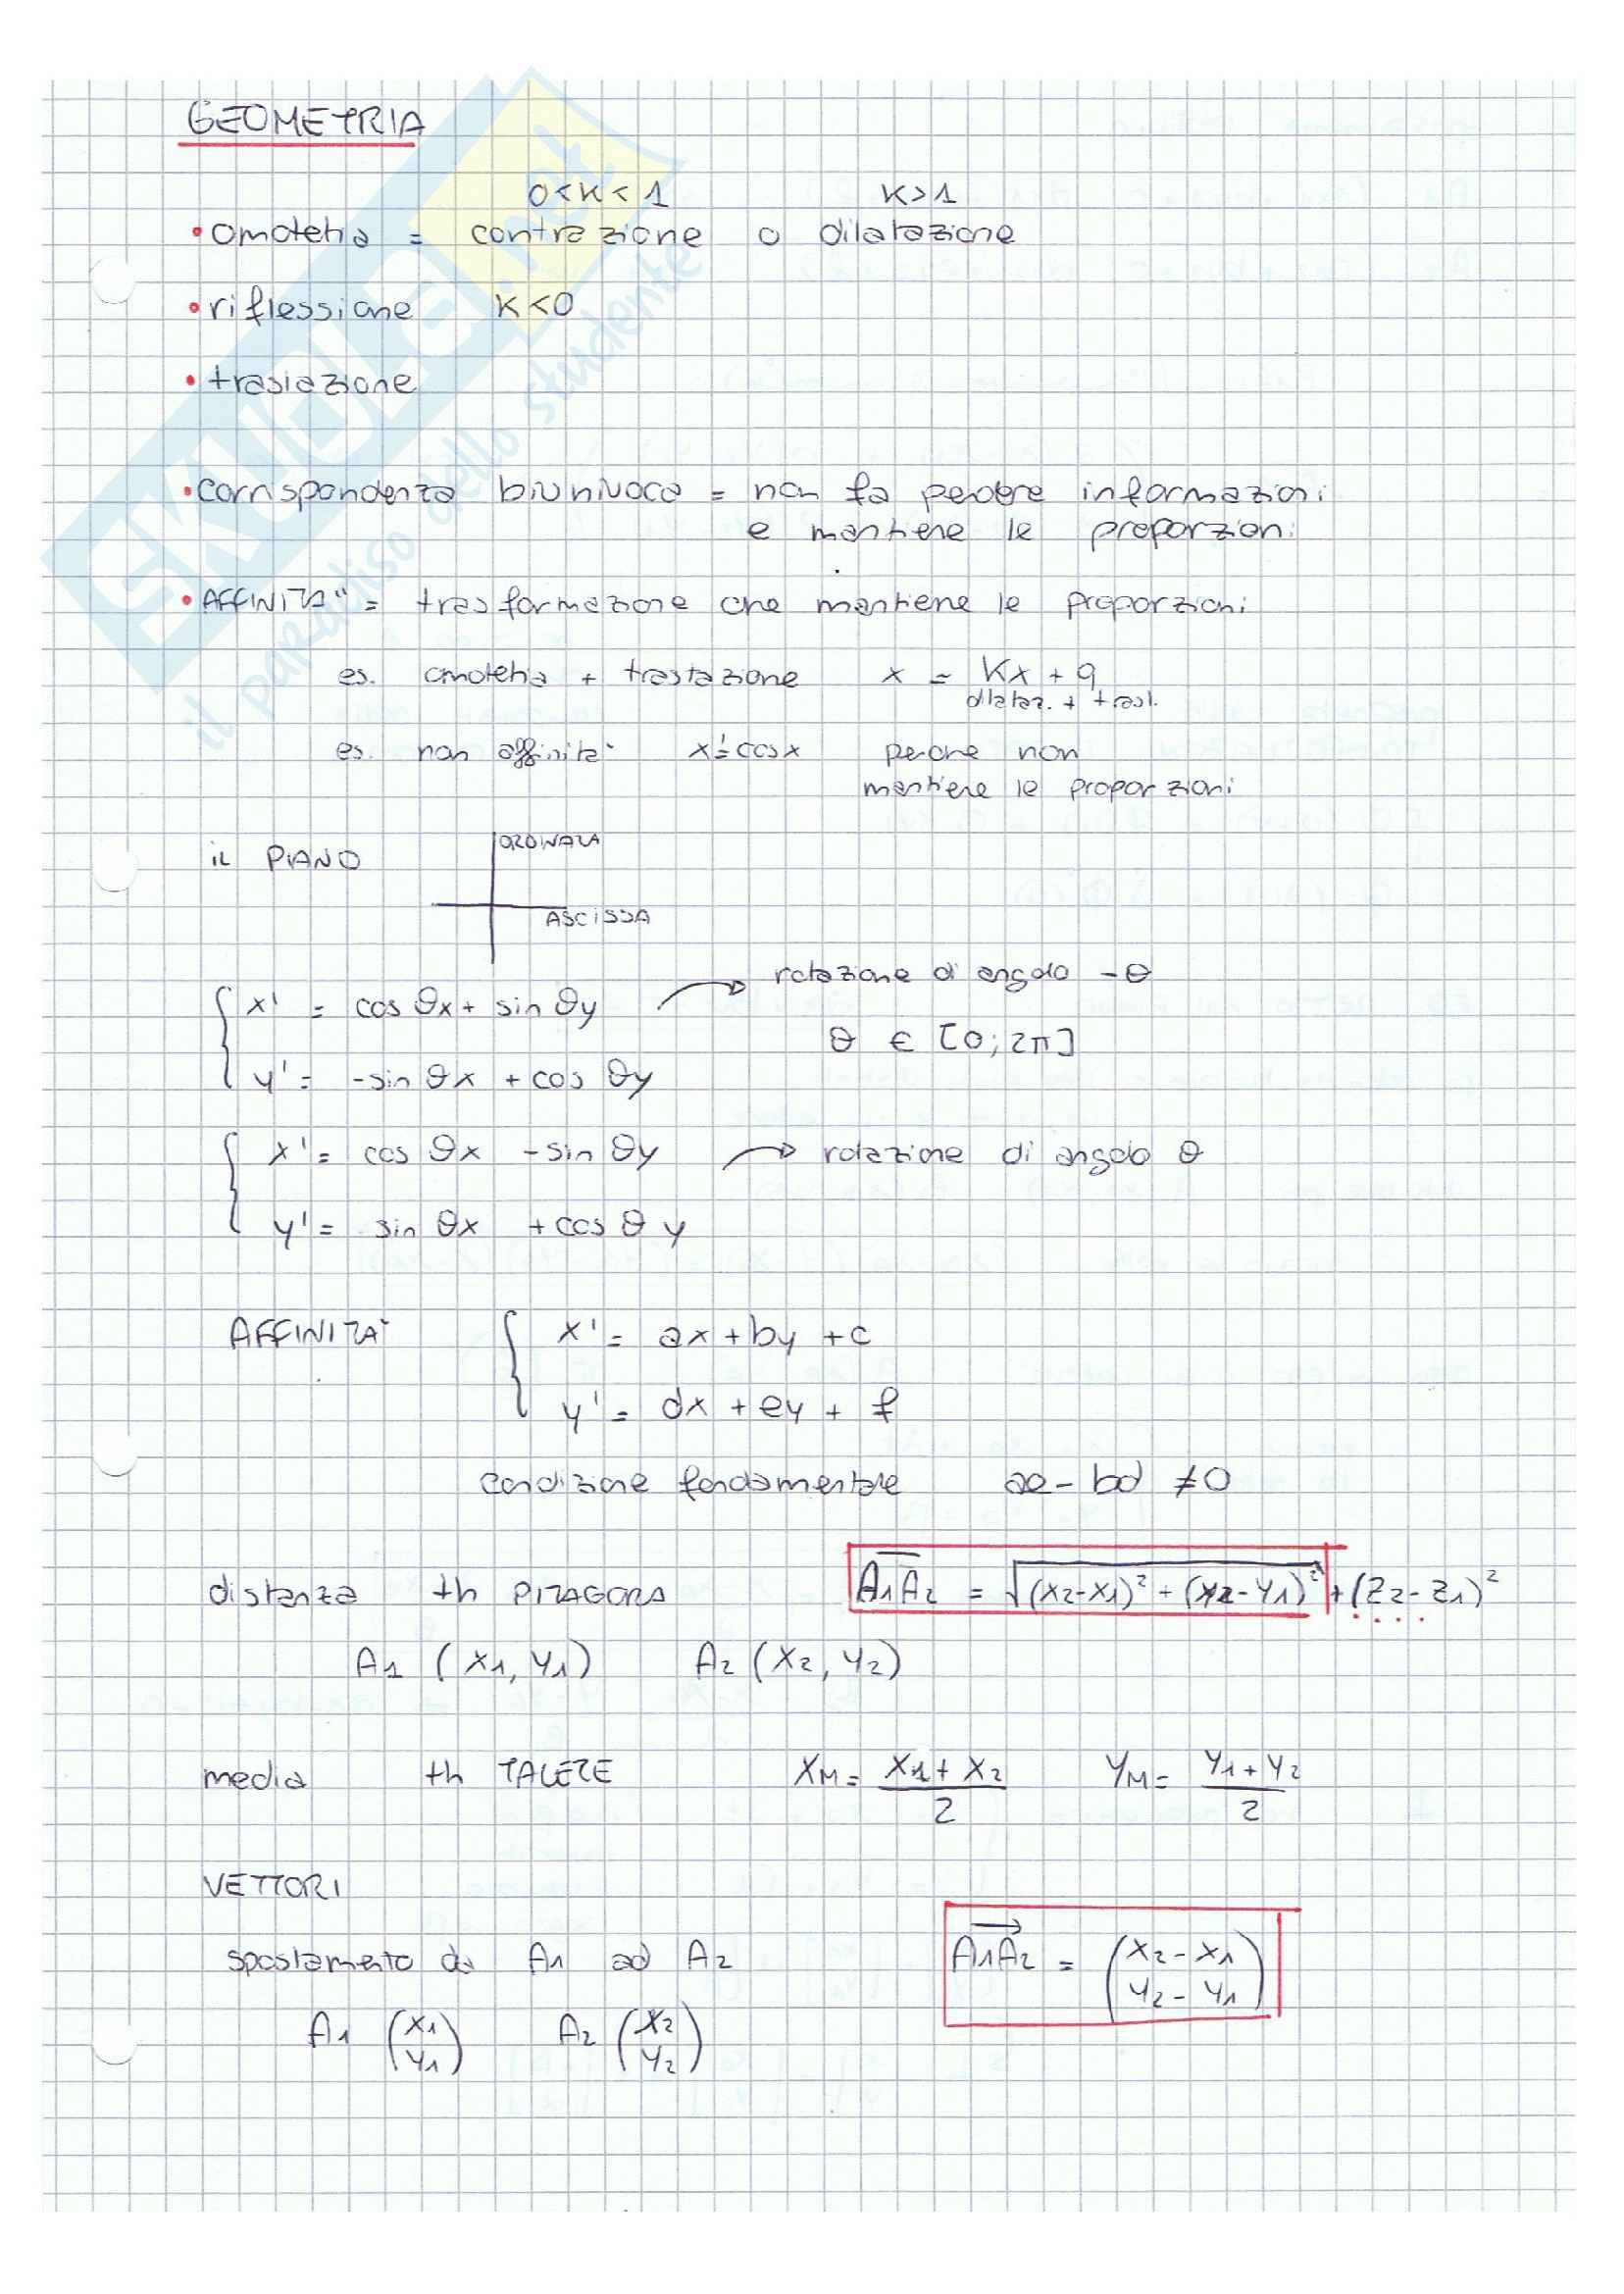 GEOMETRIA
0<K<1 K>1
• omotetia = contrazione o dilatazione
• riflessione K<0
• traslazione
• corrispondenza biunivoca = non fa perdere informazioni
e mantiene le proporzioni
• AFFINITA' = trasformazione che mantiene le proporzioni
es. omotetia + traslazione x = Kx + q
dilataz. + trasl.
es. non affinità x'=cosx perche non
mantiene le proporzioni
IL PIANO
ORDINATA
ASCISSA
x' = cos θx + sin θy → rotazione di angolo -θ
θ ∈ [0; 2π]
y' = -sin θx + cos θy
x' = cos θx - sin θy → rotazione di angolo θ
y' = sin θx + cos θ y
AFFINITA' x' = ax + by + c
y' = dx + ey + f
condizione fondamentale ae - bd ≠ 0
distanza th PITAGORA A1A2 = √(x2-x1)² + (y2-y1)² + (z2-z1)²
A1 (x1, y1) A2 (x2, y2)
media th TALETE XM = x1 + x2 / 2 YM = y1 + y2 / 2
VETTORI
spostamento da A1 ad A2 A1A2 = (x2 - x1
y2 - y1)
A1 (x1
y1) A2 (x2
y2)
SKUOLA.net
il paradiso dello studente